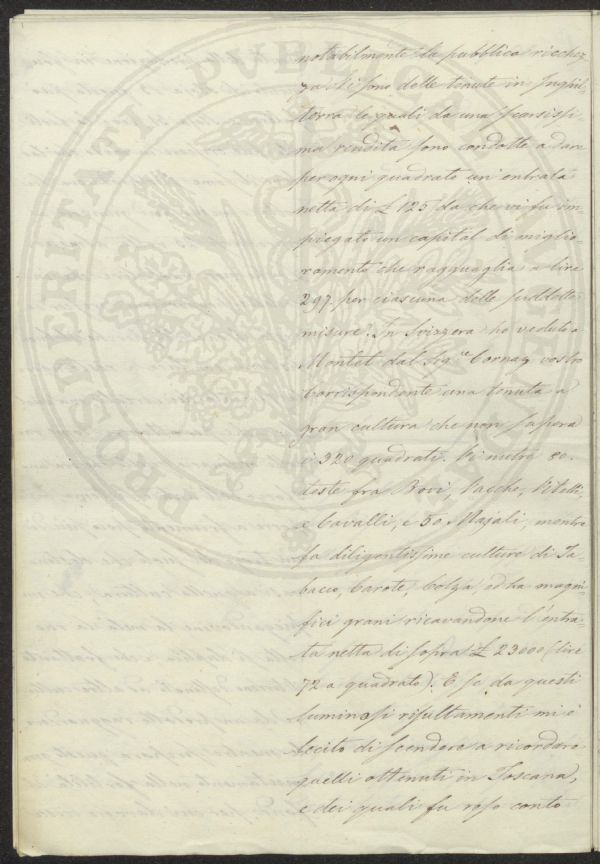 notabilmente la pubblica ricchez
za. Vi sono delle tenute in Inghil
terra le quali da una scarsissi
ma rendita sono condotte a dare
per ogni quadrato un'entrata
netta di £ 125 da che vi fu im
piegato un capital di miglio
ramento che ragguaglia a lire
297. per ciascuna delle suddette
misure. In Svizzera ho veduto a
Montet dal Sig.re Cornaz vostro
Corrispondente una tenuta a
gran cultura che non supera
i 320 quadrati. Vi nutre 80.
teste fra Bovi, Vacche, Vitelli,
e Cavalli, e 50 Majali, mentre
fa diligentissime culture di Ta
bacco, Carote, Colza, ed ha magni
fici grani ricavandone l'entra
ta netta di sopra £ 23000 (lire
72 a quadrato). E se da questi
luminosi risultamenti mi è
lecito di scendere a ricordare
quelli ottenuti in Toscana,
e dei quali fu reso conto
PROSPERITATI PUBLICAE